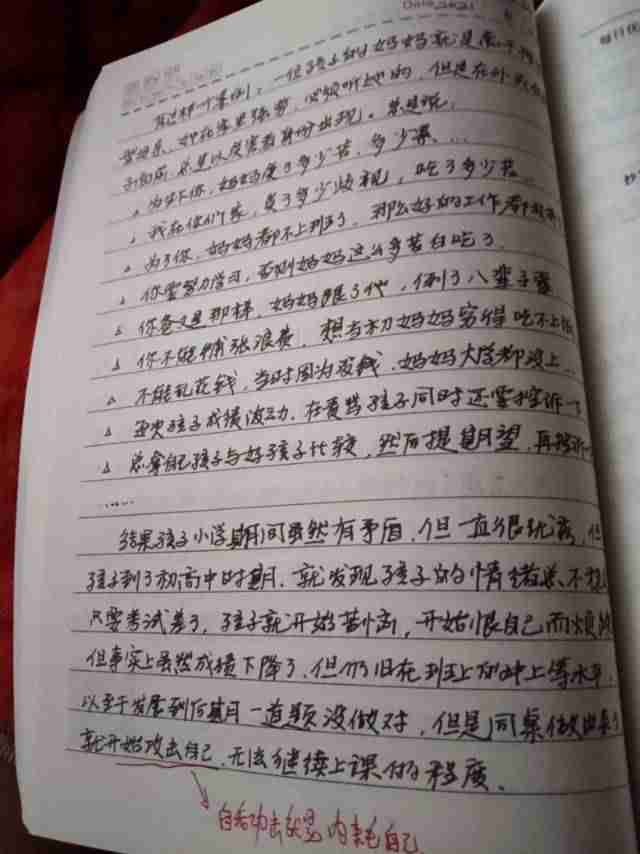 Date 2021
有过样一个案例:一位孩子的妈妈就是
型母亲,即在家里强势,必须听她的,但是在外
子问成,总是以受害者身份出现。总是说:
为了你,妈妈受了多少苦,多少累...
我在你们家,受了多少歧视,吃了多少苦
为了你,妈妈都不上班了,那么好的工作都
你要努力学习,否则妈妈这么多苦白吃了
你爸又是那样,妈妈跟了他,倒了八辈子霉
你不能铺张浪费,想当初妈妈穷得吃不上
不能乱花钱,当时因为没钱,妈妈大学都没上...
每次孩子成绩波动,在责骂孩子同时还要控诉一下
总拿自己孩子与好孩子比较,然后提期望,再控诉
……
结果孩子小学期间虽然有矛盾,但一直很优秀,但
孩子到了初高中时期,就发现孩子的情绪总不
只要考试差了,孩子就开始苦恼,开始恨自己而烦
但事实上虽然成绩下降了,但仍旧在班上的中上等水平,
以至于发展到后期一道题没做对,但是同桌做出来了
就开始攻击自己,无法继续上课的程度。
自我攻击就是内耗自己